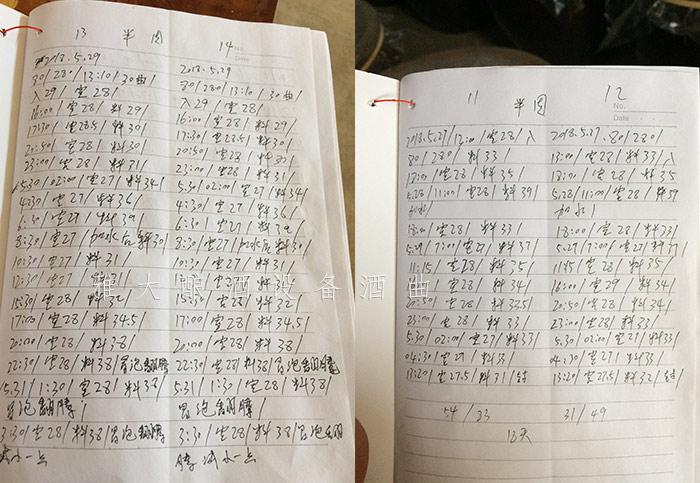 13 半固 14
2018.5.29 2018.5.29
30/280/13:10/30曲/ 30/280/13:10/30曲/
入29/室28/ 入29/室28/
16:00/室28/料29/ 16:00/室28/料29/
17:30/室28.5/料30/ 17:30/室28.5/料30/
20:50/室28/料30/ 20:50/室28/料30
23:00/室28/料31/ 23:00/室28/料31/
5.30/02:00/室27/料34/ 5.30/02:00/室27/料34/
4:30/室27/料36/ 4:30/室27/料36/
6:30/室27/料39 6:30/室27/料39/
8:30/室27/加水后料30/ 8:30/室27/加水后料30/
10:30/室27/料31/ 10:30/室27/料31/
12:30/室27/料31/ 12:30/室27/料31/
15:30/室28/料32/ 15:30/室28/料32/
17:00/室28/料34.5/ 17:00/室28/料34.5/
20:00/室28/料38/ 20:00/室28/料38/
22:30/室28/料38/冒泡翻腾 22:30/室28/料38/冒泡翻腾
5.31/1:30/室28/料38/ 5.31/1:30/室28/料38/
冒泡翻腾/ 冒泡翻腾/
3:30/室28/料38/冒泡翻腾 3:30/室28/料38/冒泡翻
减小一点 腾减小一点
11 半固 12
No.
Date
2018.5.27/12:00/室28/入 2018.5.27/80/280/
80/280/料33/ 13:00/室28/料33/入
18:00/室28/料35/ 18:00/室28/料35
5.28/11:00/室28/料39/ 5.28/11:00/室28/料39
加水/ 加水/
18:00/室28/料33/ 18:00/室28/料33/
5.29/7:00/室27/料37/ 5.29/7:00/室27/料37/
11:15/室28/料35/ 11:15/室28/料35/
料34/ 16:00/室29/料34/
20:50/室28/料33.5/ 20:50/室28/料34/
23:00/室28/料33/ 23:00/室28/料33/
5.30/02:00/室27/料33/ 5.30/02:00/室27/料33/
04:30/室27/料33/ 04:30/室27/料33/
13:20/室27.5/料31/封 13:20/室27.5/料32/封
54/33 31/49
12天
雅大酿酒设备酒曲